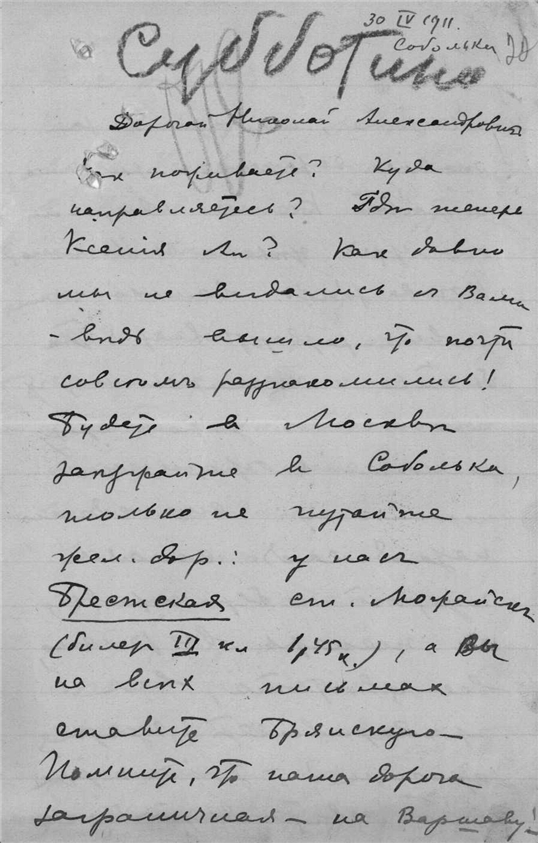 30 IV 1911.
Собольки
Субботина
Дорогой Николай Александрович
Как поживаете? Куда
направляетесь? Гдѣ теперь
Ксенія Ал? Как давно
мы не видались с Вами
– вѣдь вышло, что почти
совсѣмъ раззнакомились!
Будете в Москвѣ
заѣзжайте в Соболька,
только не путайте
жел. дор.: у насъ
Брестская ст. Можайскъ
(билет III кл 1р45к.), а Вы
на всѣх письмах
ставите Брянскую –
Помните, что наша дорога
заграничная – на Варшаву! –